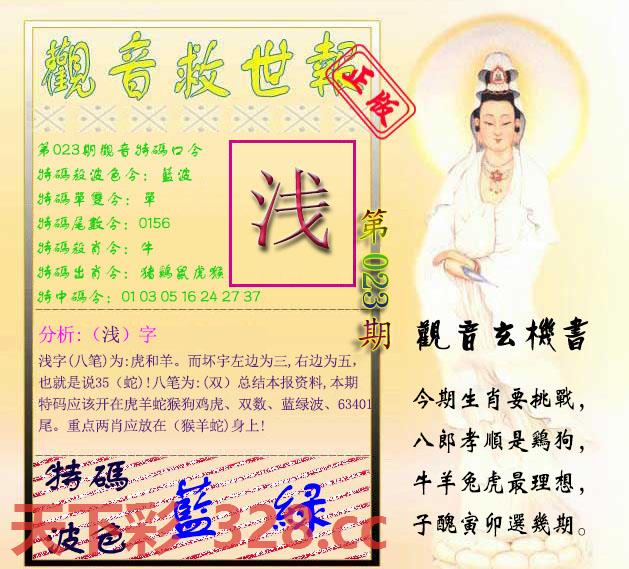 觀音救世報
正版
第023期觀音特碼口令
特碼殺波色令：藍波
特碼單雙令：單
特碼尾數令：0156
特碼殺肖令：牛
特碼出肖令：猪鷄鼠虎猴
特中碼令：01 03 05 16 24 27 37
浅
第023期
分析:（浅）字
浅字(八笔)为:虎和羊。而坏宇左边为三,右边为五，
也就是说35（蛇)!八笔为:(双）总结本报资料,本期
特码应该开在虎羊蛇猴狗鸡虎、双数、蓝绿波、63401
尾。重点两肖应放在（猴羊蛇)身上!
特碼
波色
藍 綠
天下彩 328.cc
觀音玄機書
今期生肖要挑戰，
八郎孝順是鷄狗，
牛羊兔虎最理想，
子醜寅卯選幾期。